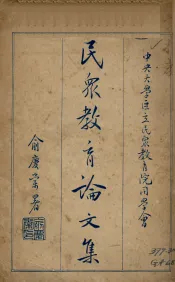 中央大學區立民衆教育院同學會
民衆教育論文集
俞慶棠署